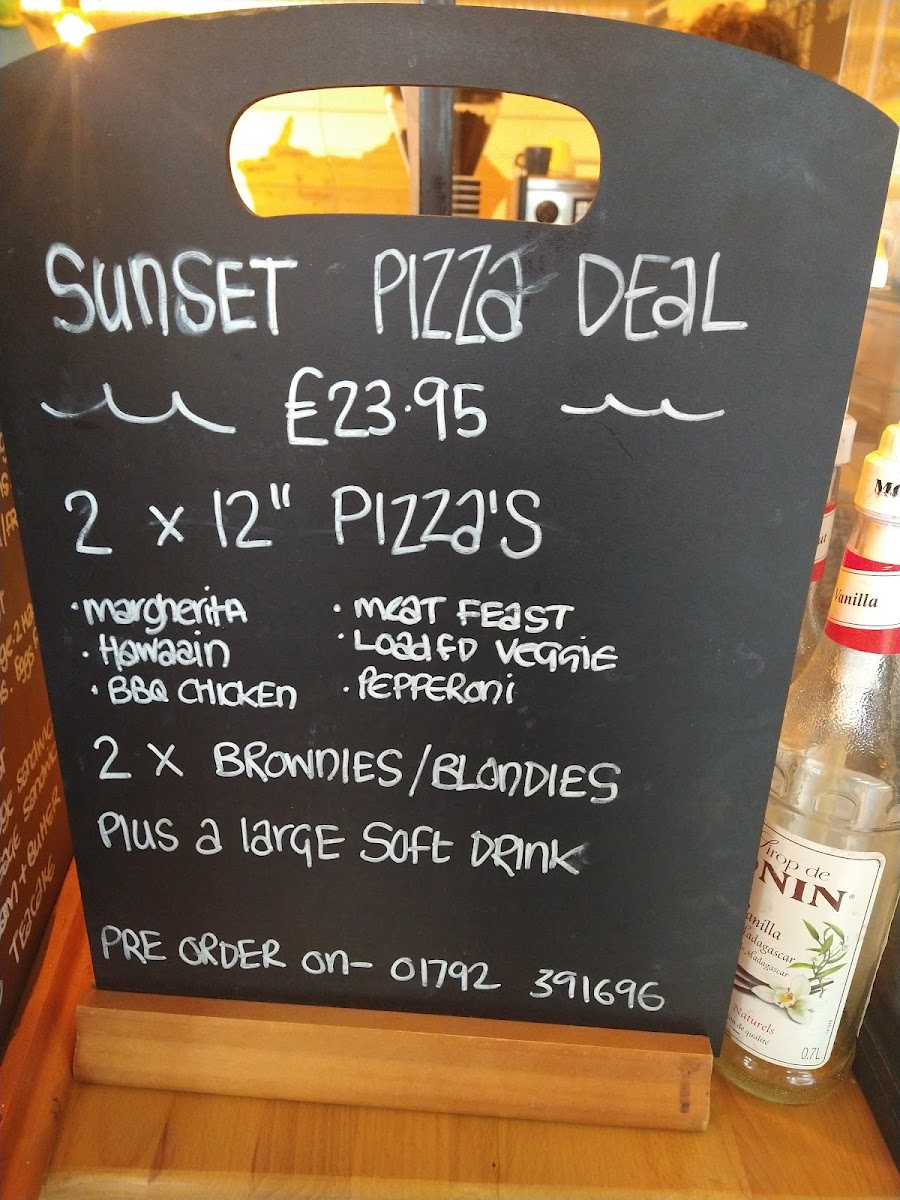 SUNSET PIZZA DEAL
£23.95
2 x 12" PIZZA'S
· Margherita
· Hawaain
· BBQ CHICKEN
· MEAT FEAST
· LOADED VEGGIE
· PEPPERONI
2 x BROWNIES/BLONDIES
Plus a large Soft DRINK
PRE ORDER on- 01792 391696
Vanilla
Sirop de
ONIN
anilla
Madagascar
Madagascar
Naturels
de qualité
0.7L
TEACAKE